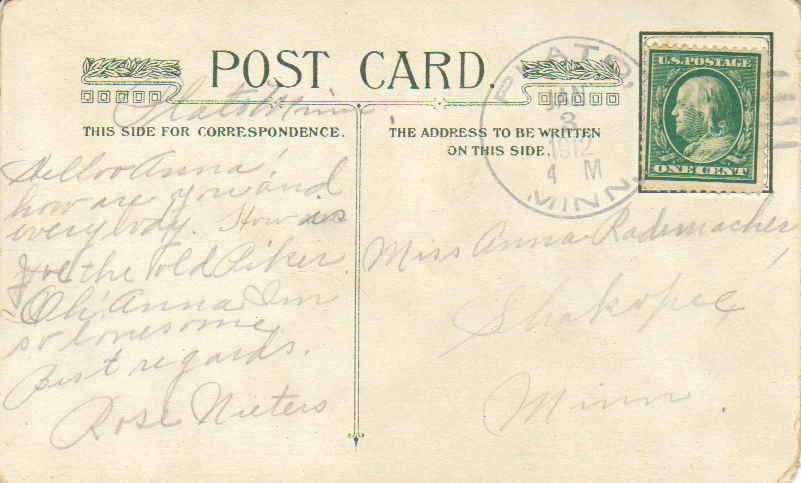 POST CARD.
Plato Minn
THIS SIDE FOR CORRESPONDENCE.
THE ADDRESS TO BE WRITTEN
ON THIS SIDE.
PLATO,
JAN
3
1912
4 M
MINN.
U.S. POSTAGE
ONE CENT
Helloo Anna!
how are you and
everybody. How is
Joe the old Piker.
Oh! Anna Im
so lonesome
Best regards.
Rose Nieters
Miss Anna Rademacher,
Shakopee
Minn.